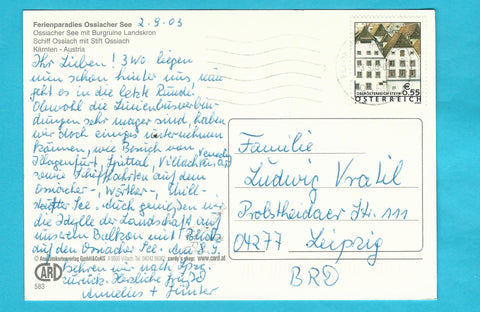 Ferienparadies Ossiacher See
Ossiacher See mit Burgruine Landskron
Schiff Ossiach mit Stift Ossiach
Kärnten - Austria
2.9.03
Ihr Lieben! 3 Wo. liegen
nun schon hinter uns, nun
geht es in die letzte Runde!
Obwohl die Linienbusverbin-
dungen sehr mager sind, haben
wir doch einiges unternehmen
können, wie Besuch von Venedig,
Klagenfurt, Spittal, Villach
sowie Schiffahrten auf dem
Ossiacher-, Wörther-, Mill-
stätter See. Auch genießen wir
die Idylle der Landschaft auf
unserem Balkon mit Blick
auf den Ossiacher See. Am 8.9.
kehren wir nach Lpzg.
zurück. Herzliche Grüße
Annelies + Günter
583
ARD
www.card.at
€ 0.55
ÖSTERREICH
Familie
Ludwig Vratil
Probstheidaer Str. 111
04277 Leipzig
BRD